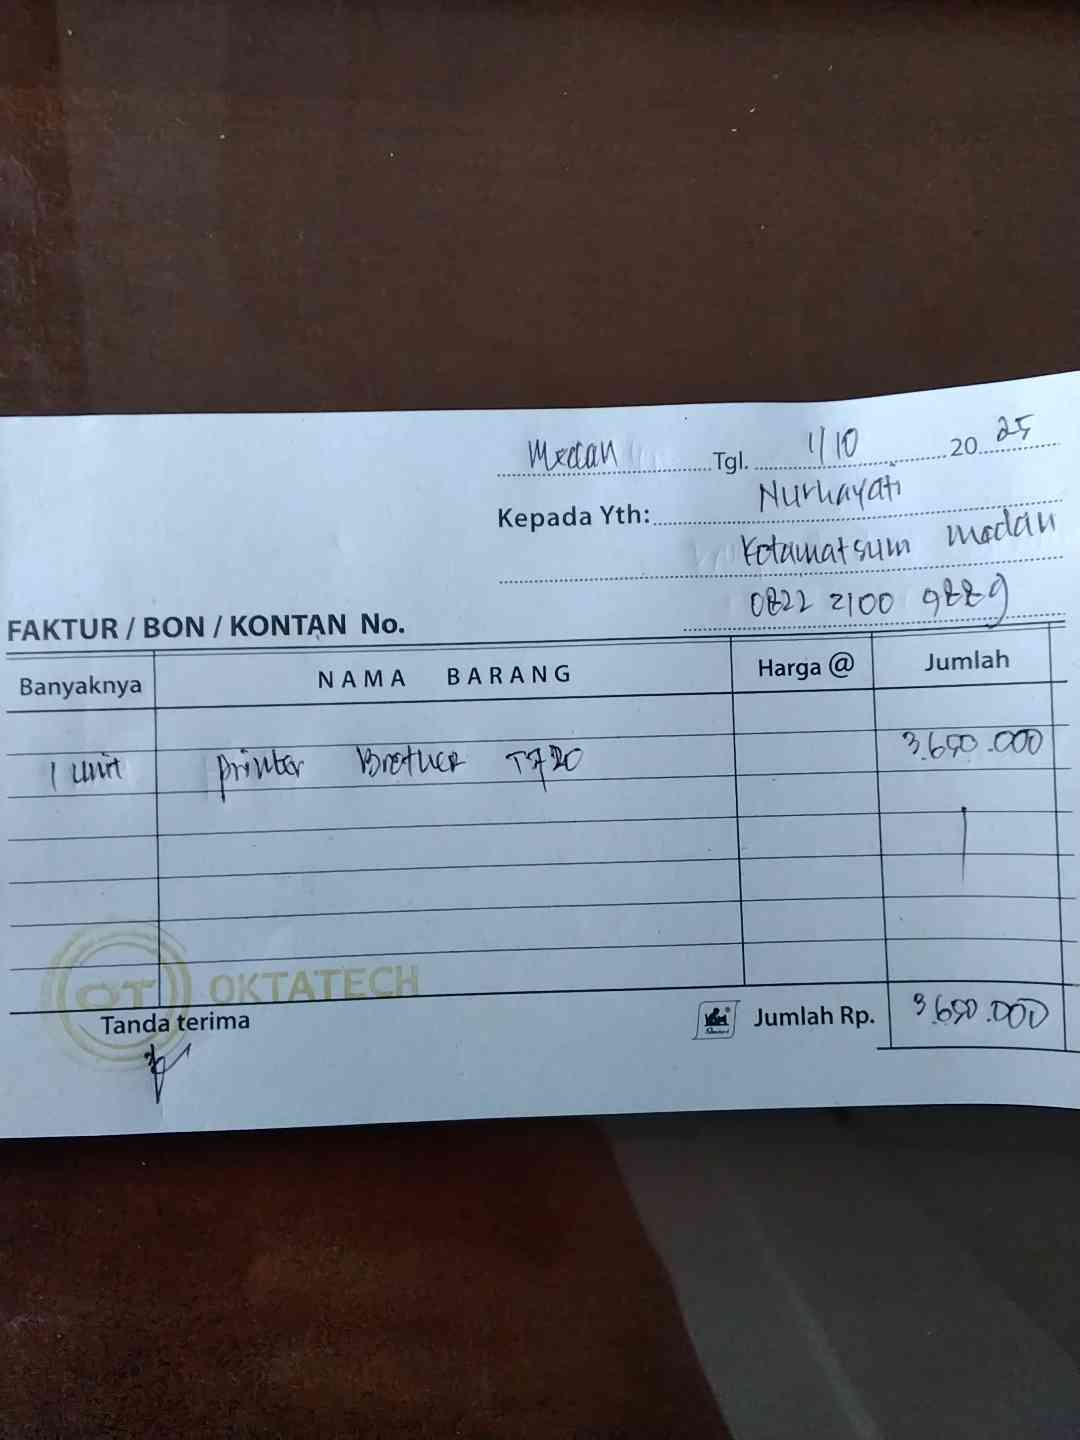 Medan Tgl. 1/10 20 25
Kepada Yth: Nurhayati
Kotamatsum Medan
0822 2100 9889
FAKTUR / BON / KONTAN No.
Banyaknya NAMA BARANG Harga @ Jumlah
1 unit printer Brother T720 3.650.000
OT OKTATECH
Tanda terima Jumlah Rp. 3.650.000